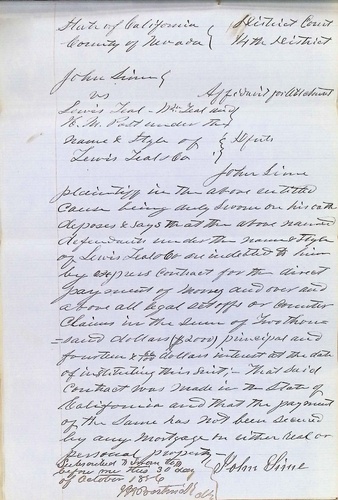 State of California { District Court
County of Nevada { 14th District
John Sime {
vs Affidavit for Attachment
Lewis Teal - Wm Teal and
H. M. Post under the
name & Style of { Defnts
Lewis Teal & Co
John Sime
plaintiff in the above entitled
cause being duly sworn on his oath
deposes & says that the above named
defendants under the name & Style
of Lewis Teal & Co are indebted to him
by express contract for the direct
payment of money and over and
above all legal setoffs or counter
Claims in the sum of Two thou
=sand dollars ($2000) principal and
fourteen & dollars interest at the date
of instituting this Suit; - That said
Contract was made in the State of
California and that the payment
of the Same has not been secured
by any mortgage on either real or
personal property -
Subscribed & sworn to
before me this 30 day
of October 1856
John Sime